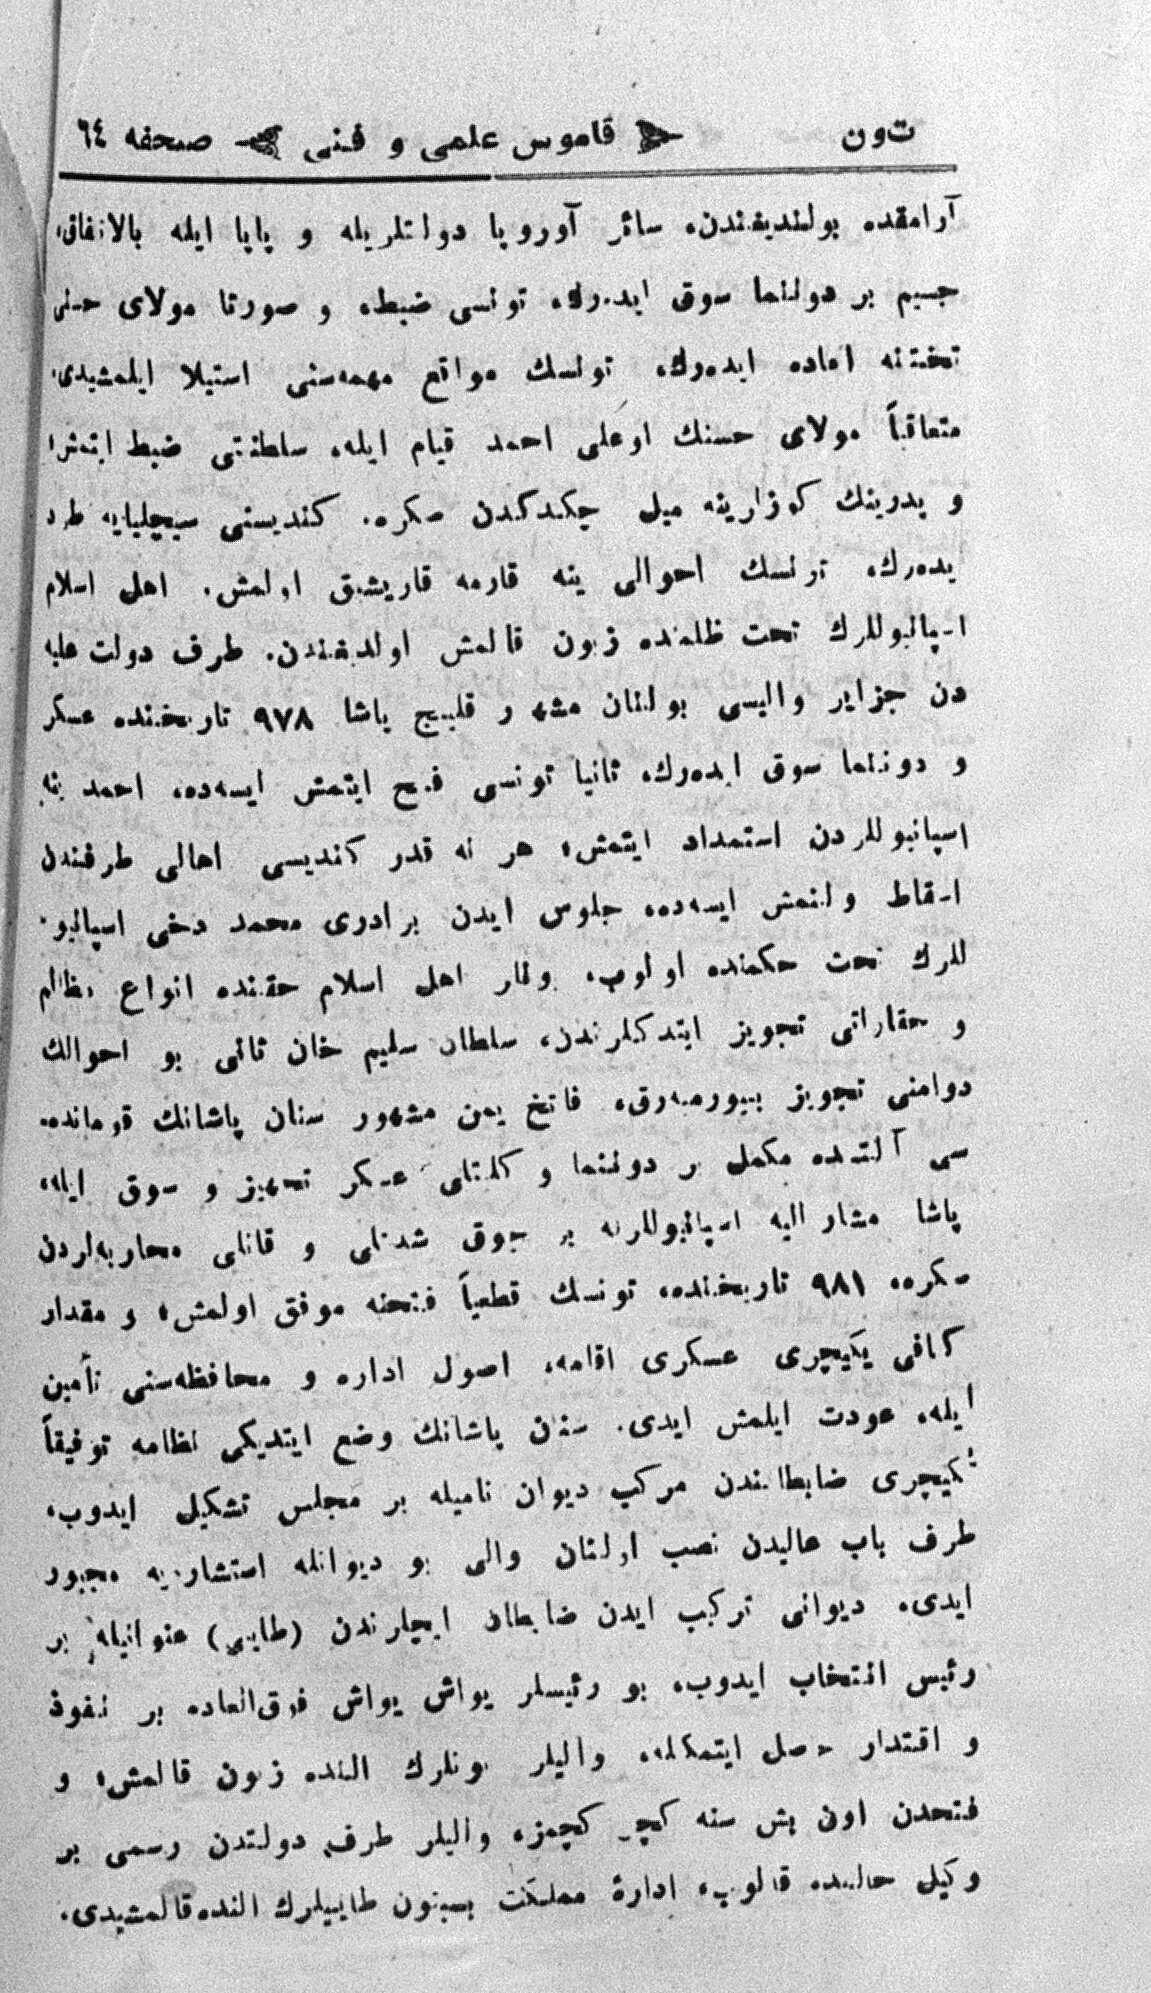 ت‌ون قاموس علمی و فنی صحفه ٦٤
آرامقده بولندیغندن، سائر آوروپا دولتلریله و پاپا ایله بالاتفاق،
جسیم بر دوننما سوق ایده‌رك، تونسی ضبطه و صورتا مولای حسنی
تختنه اعاده ایده‌رك، تونسك مواقع مهمه‌سنی استیلا ایلمشیدی،
متعاقباً مولای حسنك اوغلی احمد قیام ایله، سلطنتی ضبط ایتمش،
و پدرینك کوزلرینه میل چكدكدن صكره، كندیسنی سیچلیایه طرد
ایده‌رك، تونسك احوالی ینه قارمه قاریشیق اولمش، اهل اسلام
اسپانیوللرك تحت ظلمنده زبون قالمش اولدیغندن، طرف دولت علیه
دن جزایر والیسی بولنان مشهور قلیج پاشا ٩٧٨ تاریخنده عسكر
و دوننما سوق ایده‌رك، ثانیا تونسی فتح ایتمش ایسه‌ده، احمد ینه
اسپانیوللردن استمداد ایتمش، هر نه قدر كندیسی اهالی طرفندن
اسقاط ولنمش ایسه‌ده، جلوس ایدن برادری محمد دخی اسپانیو‌
للرك تحت حكمنده اولوب، ونلر اهل اسلام حقنده انواع مظالم
و حقاراتی تجویز ایتدكلرندن، سلطان سلیم خان ثانی بو احوالك
دوامنی تجویز بیورمیه‌رق، فاتح یمن مشهور سنان پاشانك قومانده‌
سی آلتنده مكمل بر دوننما و كلیتلی عسكر تجهیز و سوق ایله،
پاشا مشار الیه اسپانیوللرله بر چوق شدتلی و قانلی محاربه‌لردن
صكره، ٩٨١ تاریخنده، تونسك قطعیاً فتحنه موفق اولمش، و مقدار
كافی یكیچری عسكری اقامه، اصول اداره و محافظه‌سنی تأمین
ایله، عودت ایلمش ایدی. سنان پاشانك وضع ایتدیكی نظامه توفیقاً
یكیچری ضابطانندن مركب دیوان نامیله بر مجلس تشكیل ایدوب،
طرف باب عالیدن نصب اولنان والی بو دیوانله استشاره‌یه مجبور
ایدی. دیوانی تركیب ایدن ضابطان ایچلرندن (طایی) عنوانیله بر
رئیس انتخاب ایدوب، بو رئیسلر یواش یواش فوق‌العاده بر نفوذ
و اقتدار حاصل ایتمكله، والیلر بونلرك النده زبون قالمش، و
فتحدن اون بش سنه كچر كچمز، والیلر طرف دولتدن رسمی بر
وكیل حالنده قالوب، ادارۀ مملكت بسبتون طاییلرك النده قالمشیدی.